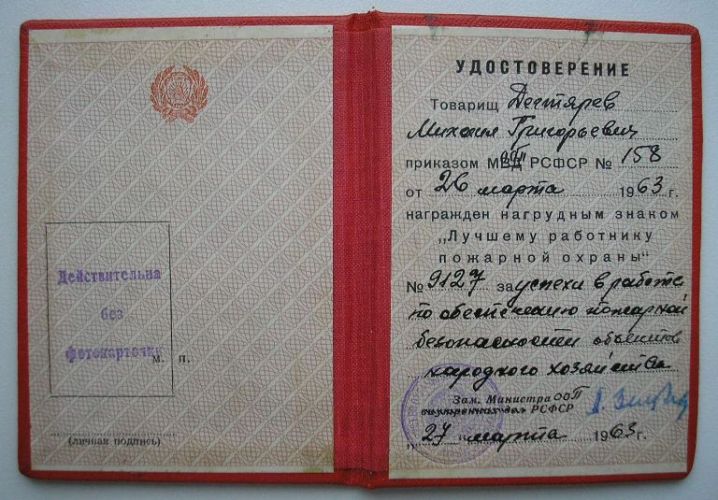 Действительна
без
фотокарточки
м. п.
(личная подпись)
УДОСТОВЕРЕНИЕ
Товарищ Дегтярев
Михаил Григорьевич
приказом МООП РСФСР № 158
от 26 марта 1963 г.
награжден нагрудным знаком
„Лучшему работнику
пожарной охраны“
№ 9127 за успехи в работе
по обеспечению пожарной
безопасности объектов
народного хозяйства
Зам. Министра ООП
внутренних дел РСФСР
„27“ марта 1963 г.